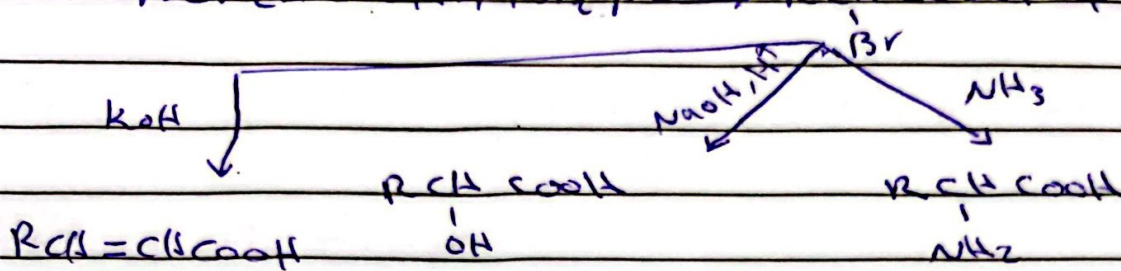 Br
KOH NaOH, H⁺ NH3
RCH COOH RCH COOH
RCH=CHCOOH OH NH2